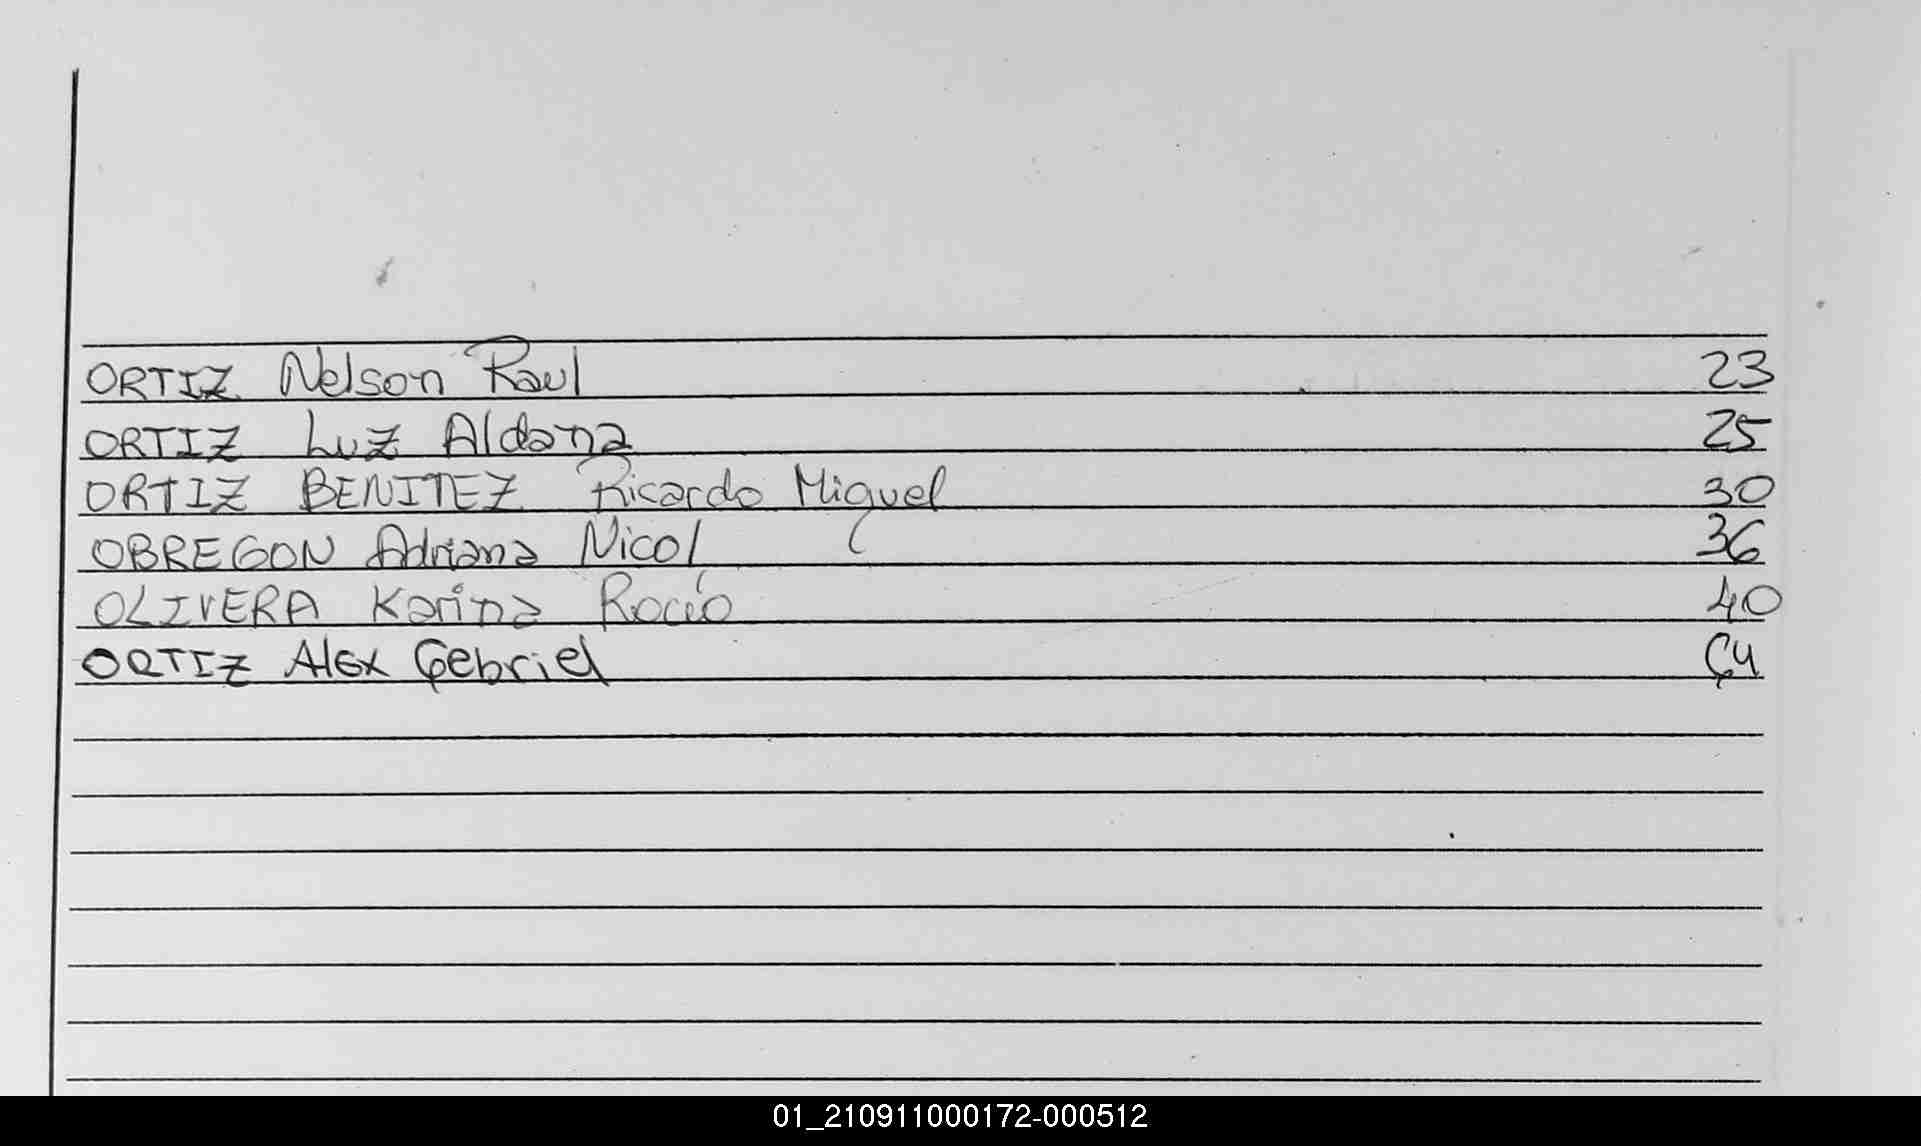 ORTIZ Nelson Raul 23
ORTIZ Luz Aldana 25
ORTIZ BENITEZ Ricardo Miguel 30
OBREGON Adriana Nicol 36
OLIVERA Karina Rocío 40
ORTIZ Alex Gebriel 64
01_210911000172-000512